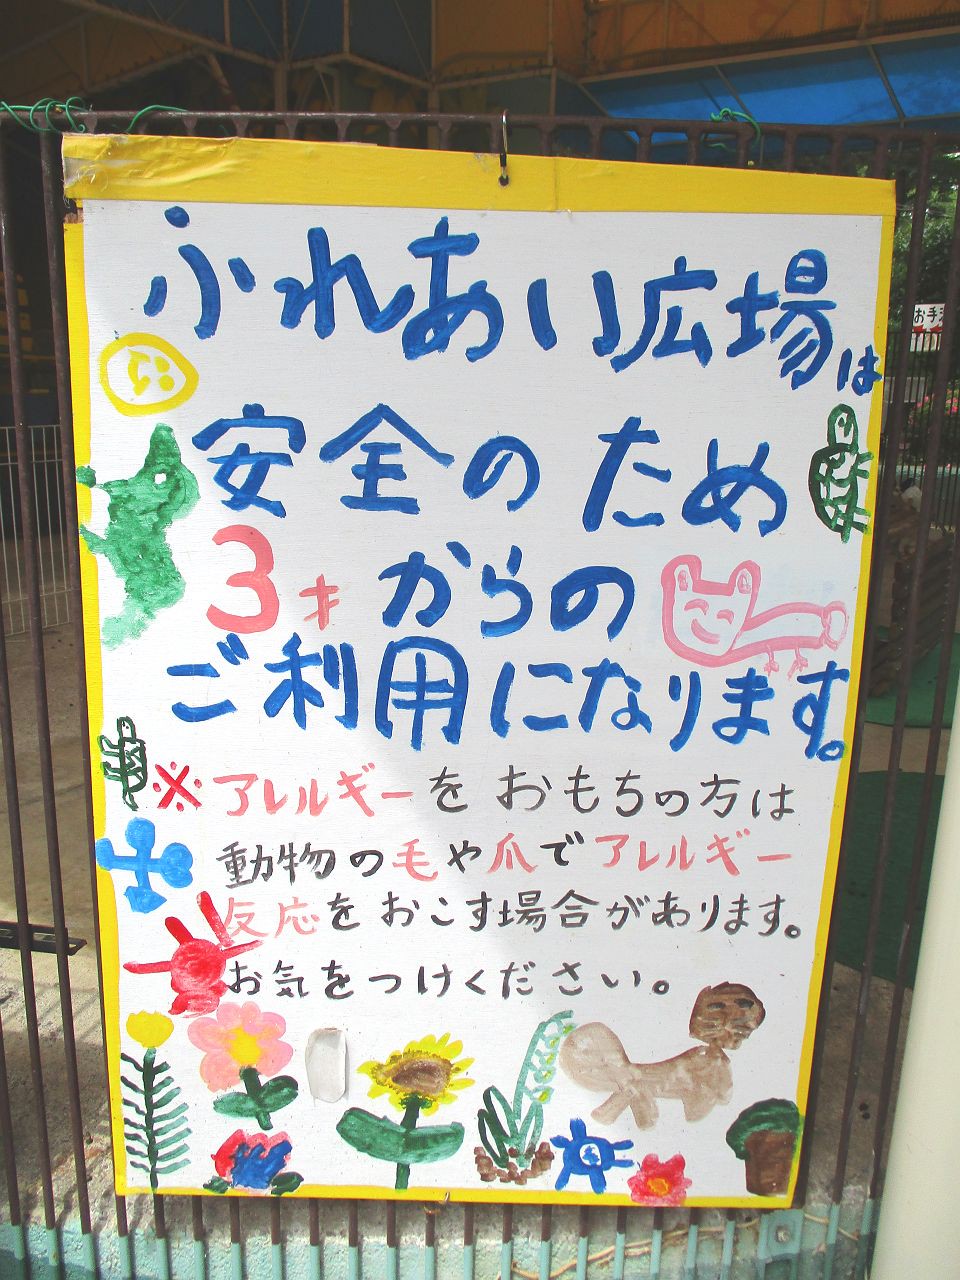 ふれあい広場は
安全のため
3才からの
ご利用になります。
※アレルギーをおもちの方は
動物の毛や爪でアレルギー
反応をおこす場合があります。
お気をつけください。
お手